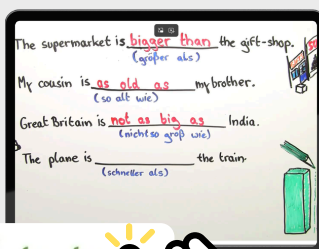 The supermarket is bigger than the gift-shop.
(größer als)
My cousin is as old as my brother.
(so alt wie)
Great Britain is not as big as India.
(nicht so groß wie)
The plane is ____________ the train.
(schneller als)